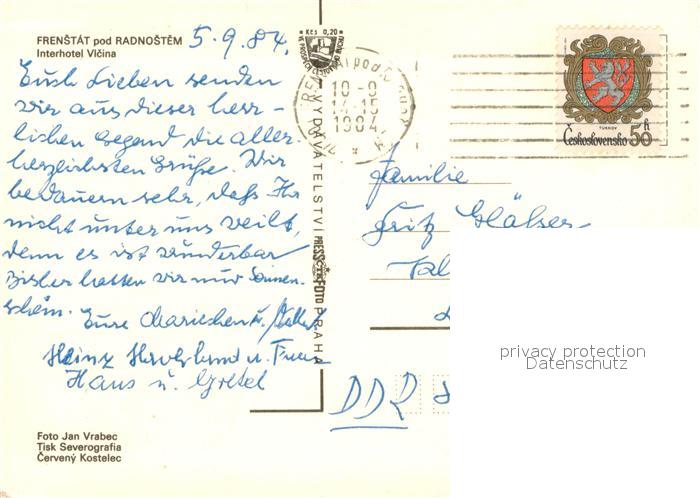 FRENŠTÁT pod RADNOŠTĚM 5.9.84.
Interhotel Vlčina
Euch Lieben senden
wir aus dieser herr-
lichen Gegend die aller-
herzlichsten Grüße. Wir
bedauern sehr, dass Ihr
nicht unter uns weilt,
denn es ist wunderbar
bisher hatten wir nur Sonnen-
schein.
Eure Mariechen u.
Heinz u. Frau
Hans u. Gretel
Foto Jan Vrabec
Tisk Severografia
Červený Kostelec
Kčs 0,20
VYDAVATELSTVÍ PRESSFOTO PRAHA
10-9
14-15
1984
TURNOV
Československo 50 h
Familie
Fritz
DDR
privacy protection
Datenschutz